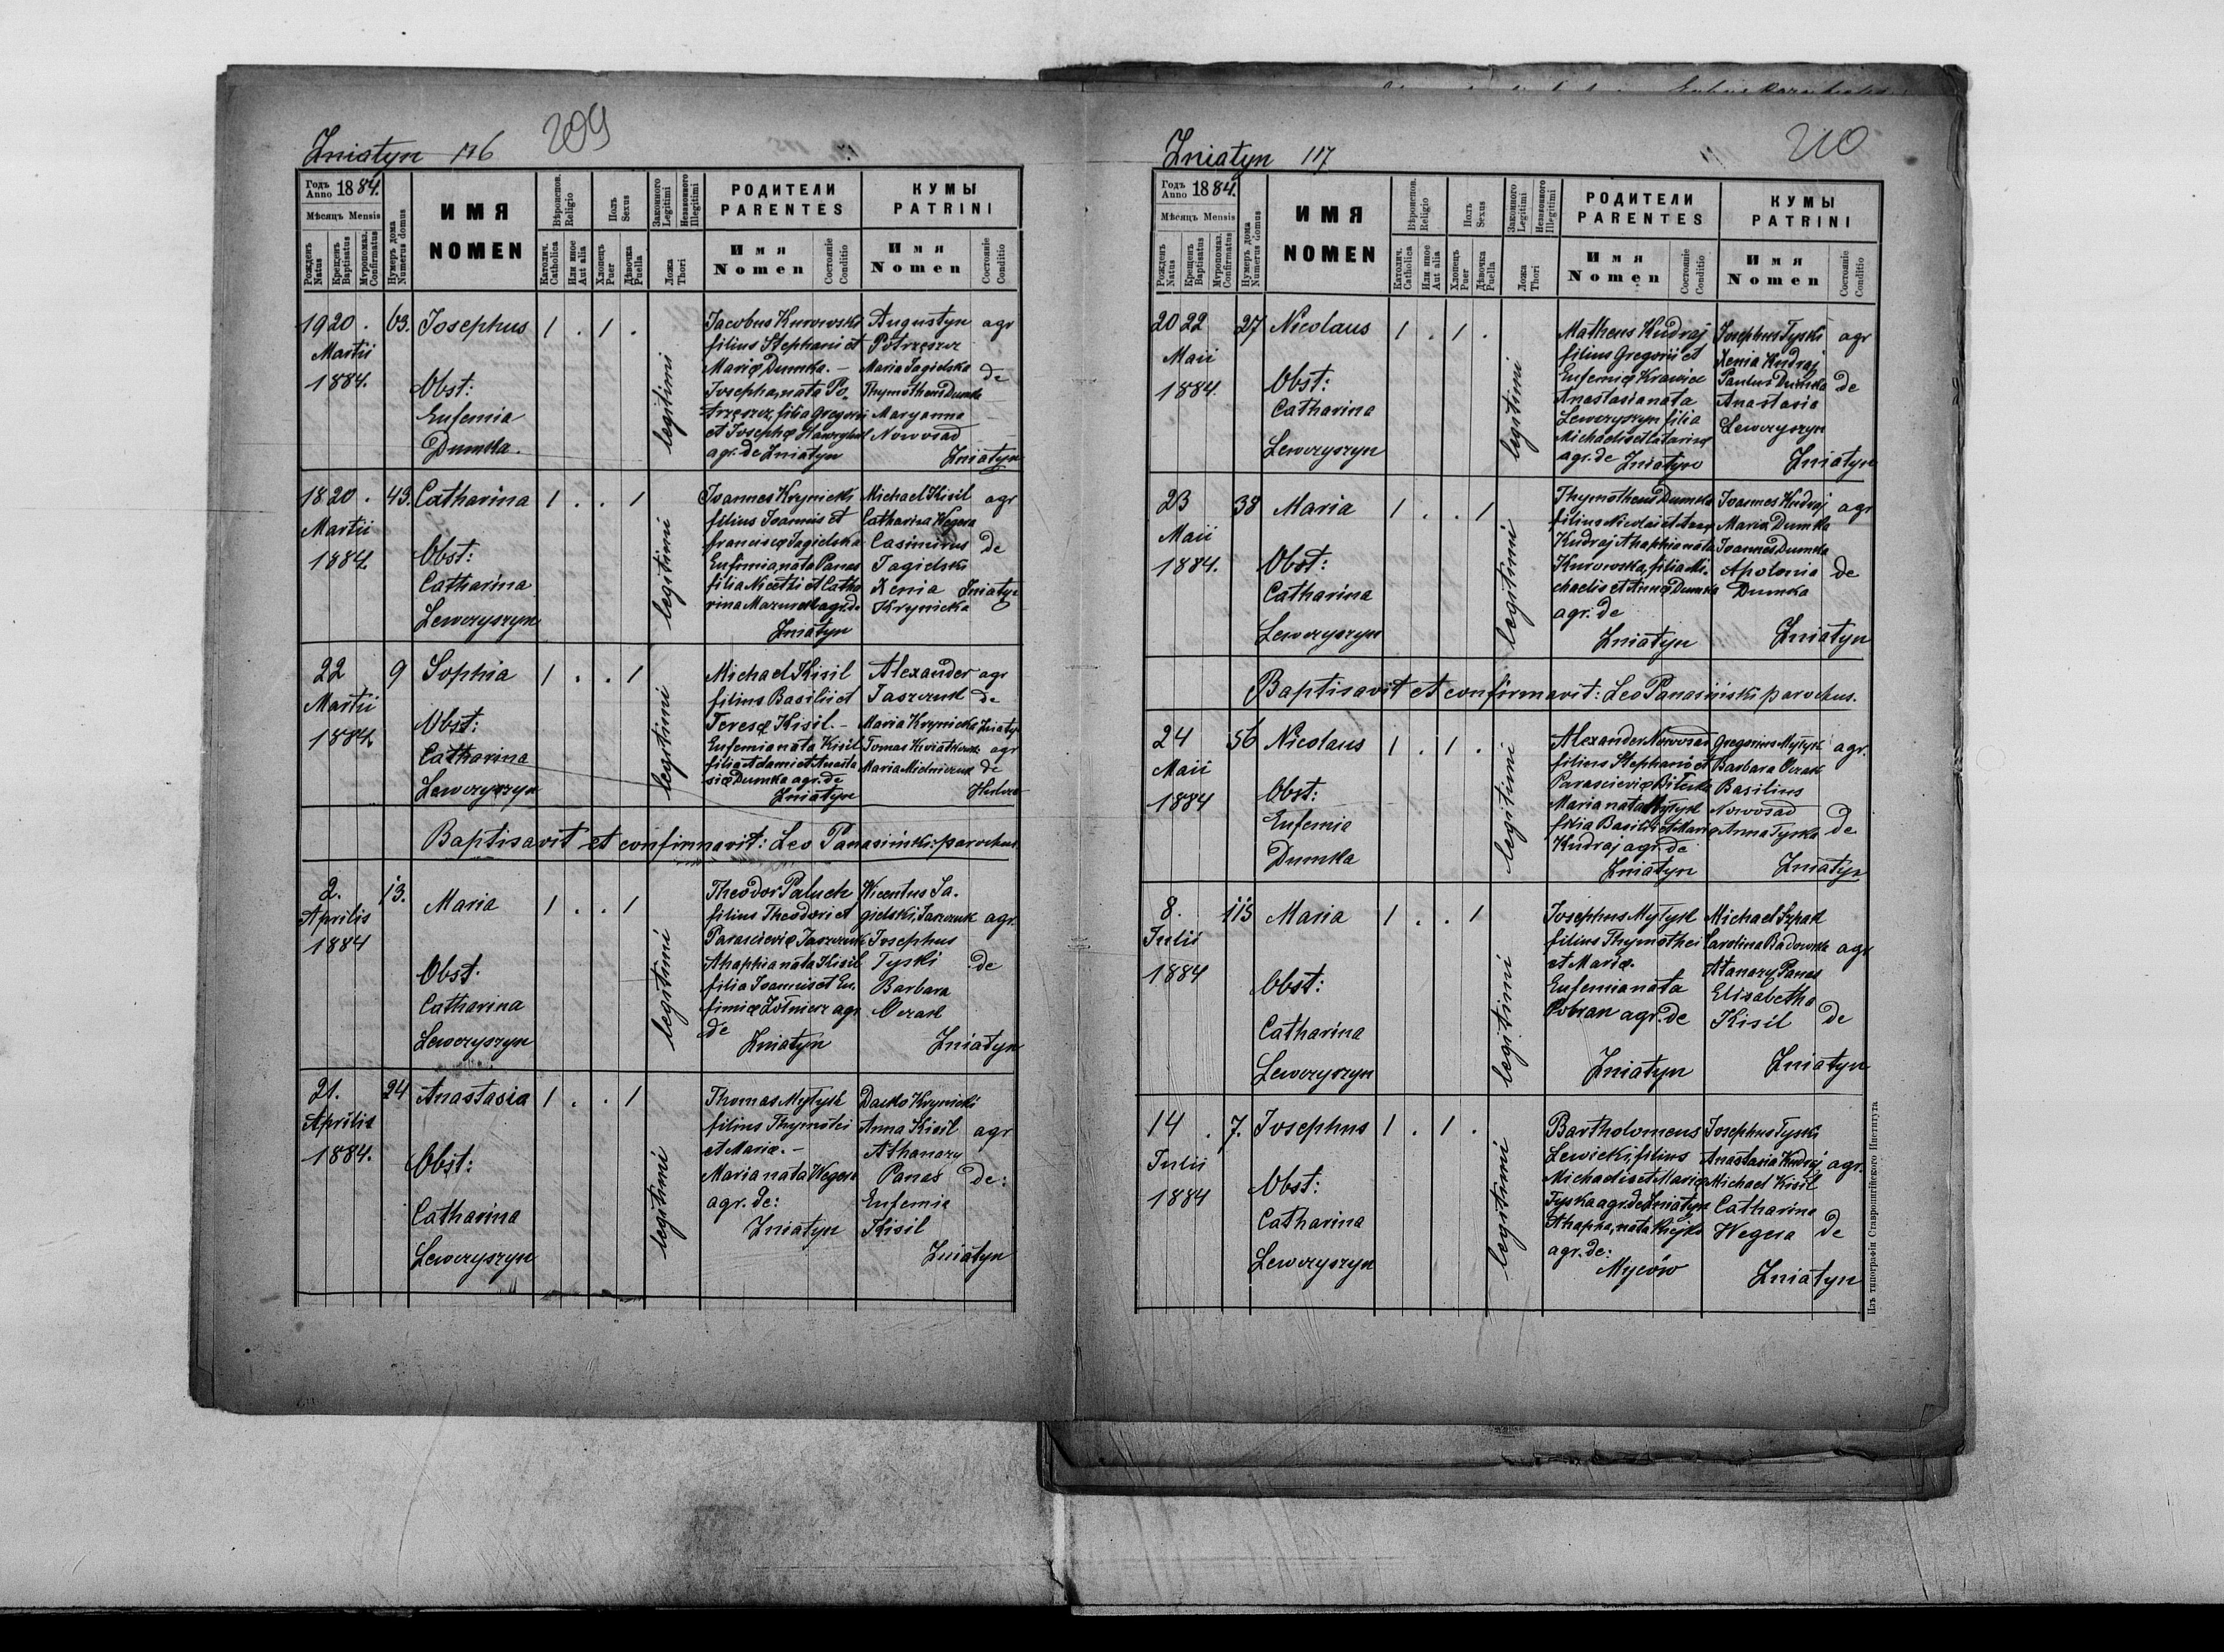 Żniatyn 116
209
Годъ Anno 1884.
Мѣсяцъ Mensis
Рожденъ Natus
Крещенъ Baptisatus
Муропомаз. Confirmatus
Нумеръ дома Numerus domus
ИМЯ
NOMEN
Вѣроиспов. Religio
Католич. Catholica
Или иное Aut alia
Полъ Sexus
Хлопецъ Puer
Дѣвочка Puella
Законного Legitimi
Незаконного Illegitimi
Ложа Thori
РОДИТЕЛИ
PARENTES
Имя
Nomen
Состояніе Conditio
КУМЫ
PATRINI
Имя
Nomen
Состояніе Conditio
19 20 .
Martii
1884.
63.
Josephus
Obst:
Eufemia
Dumka.
1 . 1 .
legitimi
Jacobus Kurowski
filius Stephani et
Mariæ Dumka. –
Josepha, nata Po-
trzeszcz, filia Gregorii
et Josephæ Hawryluk
agr. de Żniatyn
Augustyn agr
Potrzeszcz
Maria Jagielska de
Thymotheus Dumka
Maryanna
Nowosad
Żniatyn
18 20 .
Martii
1884.
43.
Catharina
Obst:
Catharina
Lewczyszyn
1 . . 1
legitimi
Joannes Krynicki
filius Joannis et
Franciscæ Jagielska
Eufemia, nata Panas
filia Nicetæ et Catha
rina Mazurek agr. de
Żniatyn
Michael Kisil agr
Catharina Wegera
Casimirus de
Jagielski
Xenia Żniatyn
Krynicka
22
Martii
1884.
9
Sophia
Obst:
Catharina
Lewczyszyn
1 . . 1
legitimi
Michael Kisil
filius Basilii et
Teresæ Kisil. –
Eufemia nata Kisil
filia Adami et Anasta
siæ Dumka agr. de
Żniatyn
Alexander agr
Jaszczuk de
Maria Krynicka Żniatyn
Tomas Kwiatkowski agr
Maria Mielniczuk de
Hulcze
Baptisavit et confirmavit: Leo Panasiński parochus
2.
Aprilis
1884
13.
Maria
Obst.
Catharina
Lewczyszyn
1 . . 1
legitimi
Theodor Paluch
filius Theodori et
Parascieviæ Jaszczuk
Ahaphia nata Kisil
filia Joannis et Eu-
fimiæ Żołnierz agr
de
Żniatyn
Wicentus Ja-
gielski, Jaszczuk agr.
Josephus
Tyski de
Barbara
Oczak
Żniatyn
21.
Aprilis
1884.
24
Anastasia
Obst:
Catharina
Lewczyszyn
1 . . 1
legitimi
Thomas Mytyk
filius Thymotei
et Mariæ. –
Maria nata Wegera
agr. de:
Żniatyn
Dacko Krynicki
Anna Kisil agr
Athanazy
Panas de:
Eufemia
Kisil
Żniatyn
Żniatyn 117
210
Годъ Anno 1884.
Мѣсяцъ Mensis
Рожденъ Natus
Крещенъ Baptisatus
Муропомаз. Confirmatus
Нумеръ дома Numerus domus
ИМЯ
NOMEN
Вѣроиспов. Religio
Католич. Catholica
Или иное Aut alia
Полъ Sexus
Хлопецъ Puer
Дѣвочка Puella
Законного Legitimi
Незаконного Illegitimi
Ложа Thori
РОДИТЕЛИ
PARENTES
Имя
Nomen
Состояніе Conditio
КУМЫ
PATRINI
Имя
Nomen
Состояніе Conditio
20 22
Maii
1884.
27
Nicolaus
Obst:
Catharina
Lewczyszyn
1 . 1 .
legitimi
Matheus Kudraj
filius Gregorii et
Eufemiæ Krawiec
Anastasia nata
Lewczyszyn filia
Michaelis et Catarinæ
agr. de Żniatyn
Josephus Tyski agr
Xenia Kudraj
Paulus Dumka de
Anastasia
Lewczyszyn
Żniatyn
23
Maii
1884.
38
Maria
Obst:
Catharina
Lewczyszyn
1 . . 1
legitimi
Thymotheus Dumka
filius Nicolai et Annæ
Kudraj Ahaphia nata
Kurowska, filia Mi-
chaelis et Annæ Dumka
agr. de
Żniatyn
Joannes Kudraj agr
Maria Dumka
Joannes Dumka
Apolonia de
Dumka
Żniatyn
Baptisavit et confirmavit: Leo Panasiński parochus.
24
Maii
1884
56
Nicolaus
Obst:
Eufemia
Dumka
1 . 1 .
legitimi
Alexander Nowosad
filius Stephani et
Parascieviæ Biłecka
Maria nata Mytyk
filia Basilii et Mariæ
Kudraj agr. de
Żniatyn
Gregorius Mytyk agr.
Barbara Oczak
Basilius
Nowosad
Anna Tyska de
Żniatyn
8.
Julii
1884
113
Maria
Obst:
Catharina
Lewczyszyn
1 . . 1
legitimi
Josephus Mytyk
filius Thymothei
et Mariæ.
Eufemia nata
Pobran agr. de
Żniatyn
Michael Szpak
Carolina Badowska agr
Atanazy Panas
Elisabetha
Kisil de
Żniatyn
14 .
Julii
1884
7.
Josephus
Obst:
Catharina
Lewczyszyn
1 . 1 .
legitimi
Bartholomeus
Lewicki, filius
Michaelis et Mariæ
Tyska agr. de Żniatyn
Ahapha, nata
agr. de:
Myców
Josephus Tyski
Anastasia Kudraj agr.
Michael Kisil
Catharina
Wegera de
Żniatyn
Изъ типографіи Ставропигійского Института